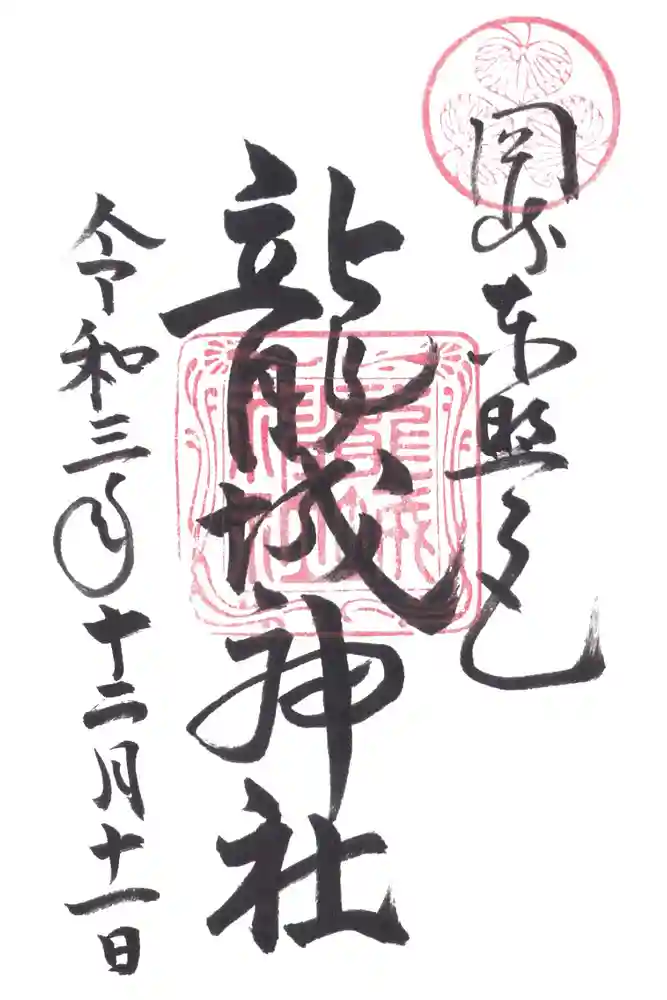 岡崎東照宮
龍城神社
令和三年十二月十一日